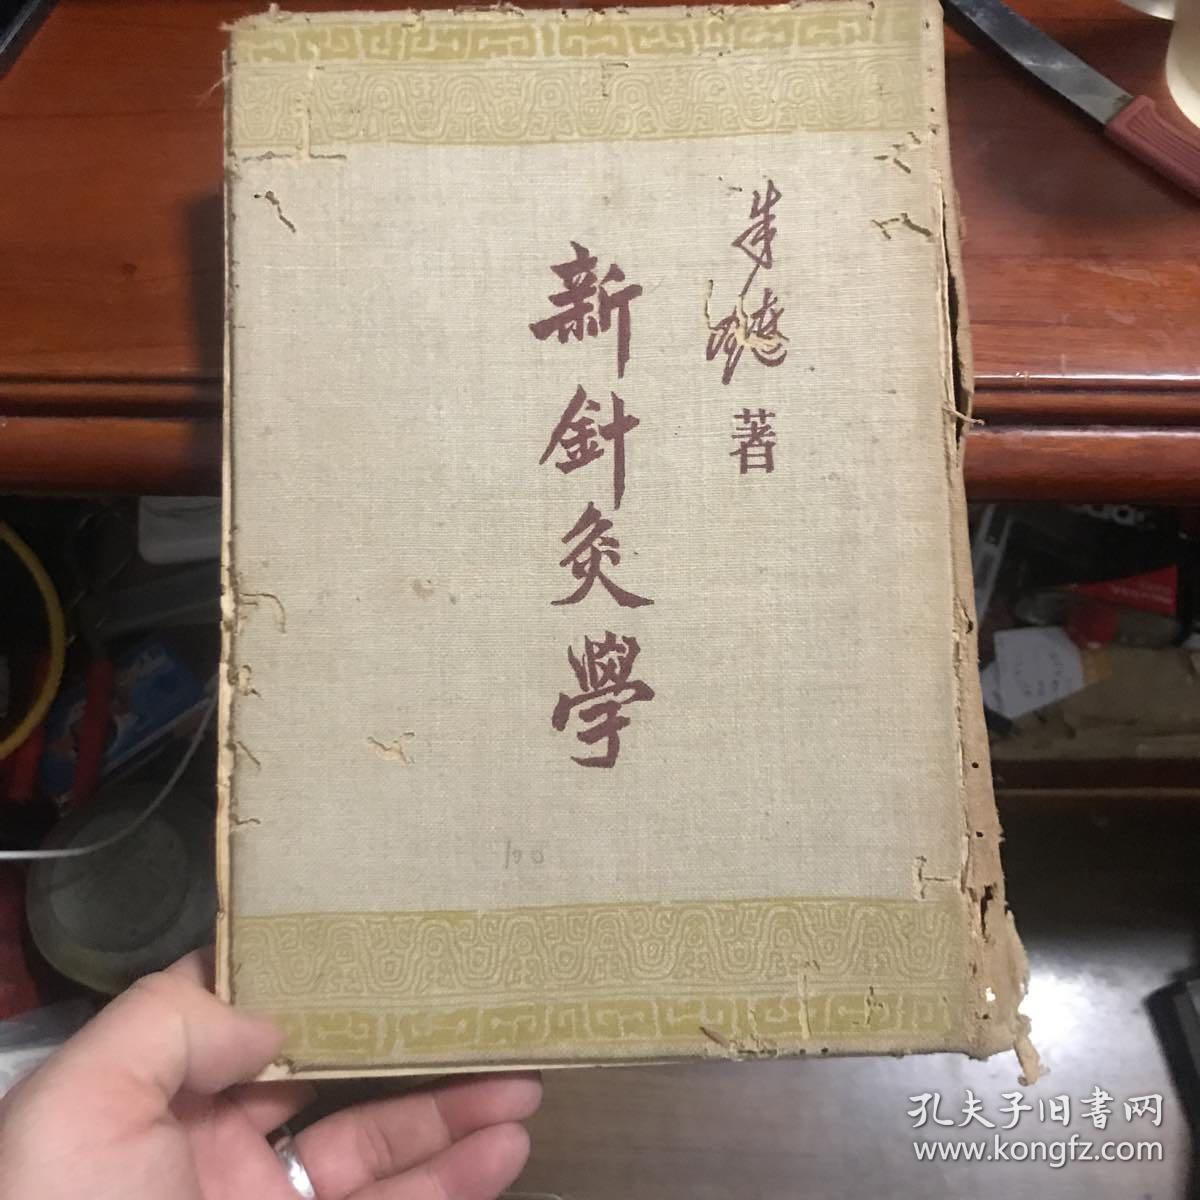 朱璉
著
新針灸學
100
孔夫子旧書网
www.kongfz.com